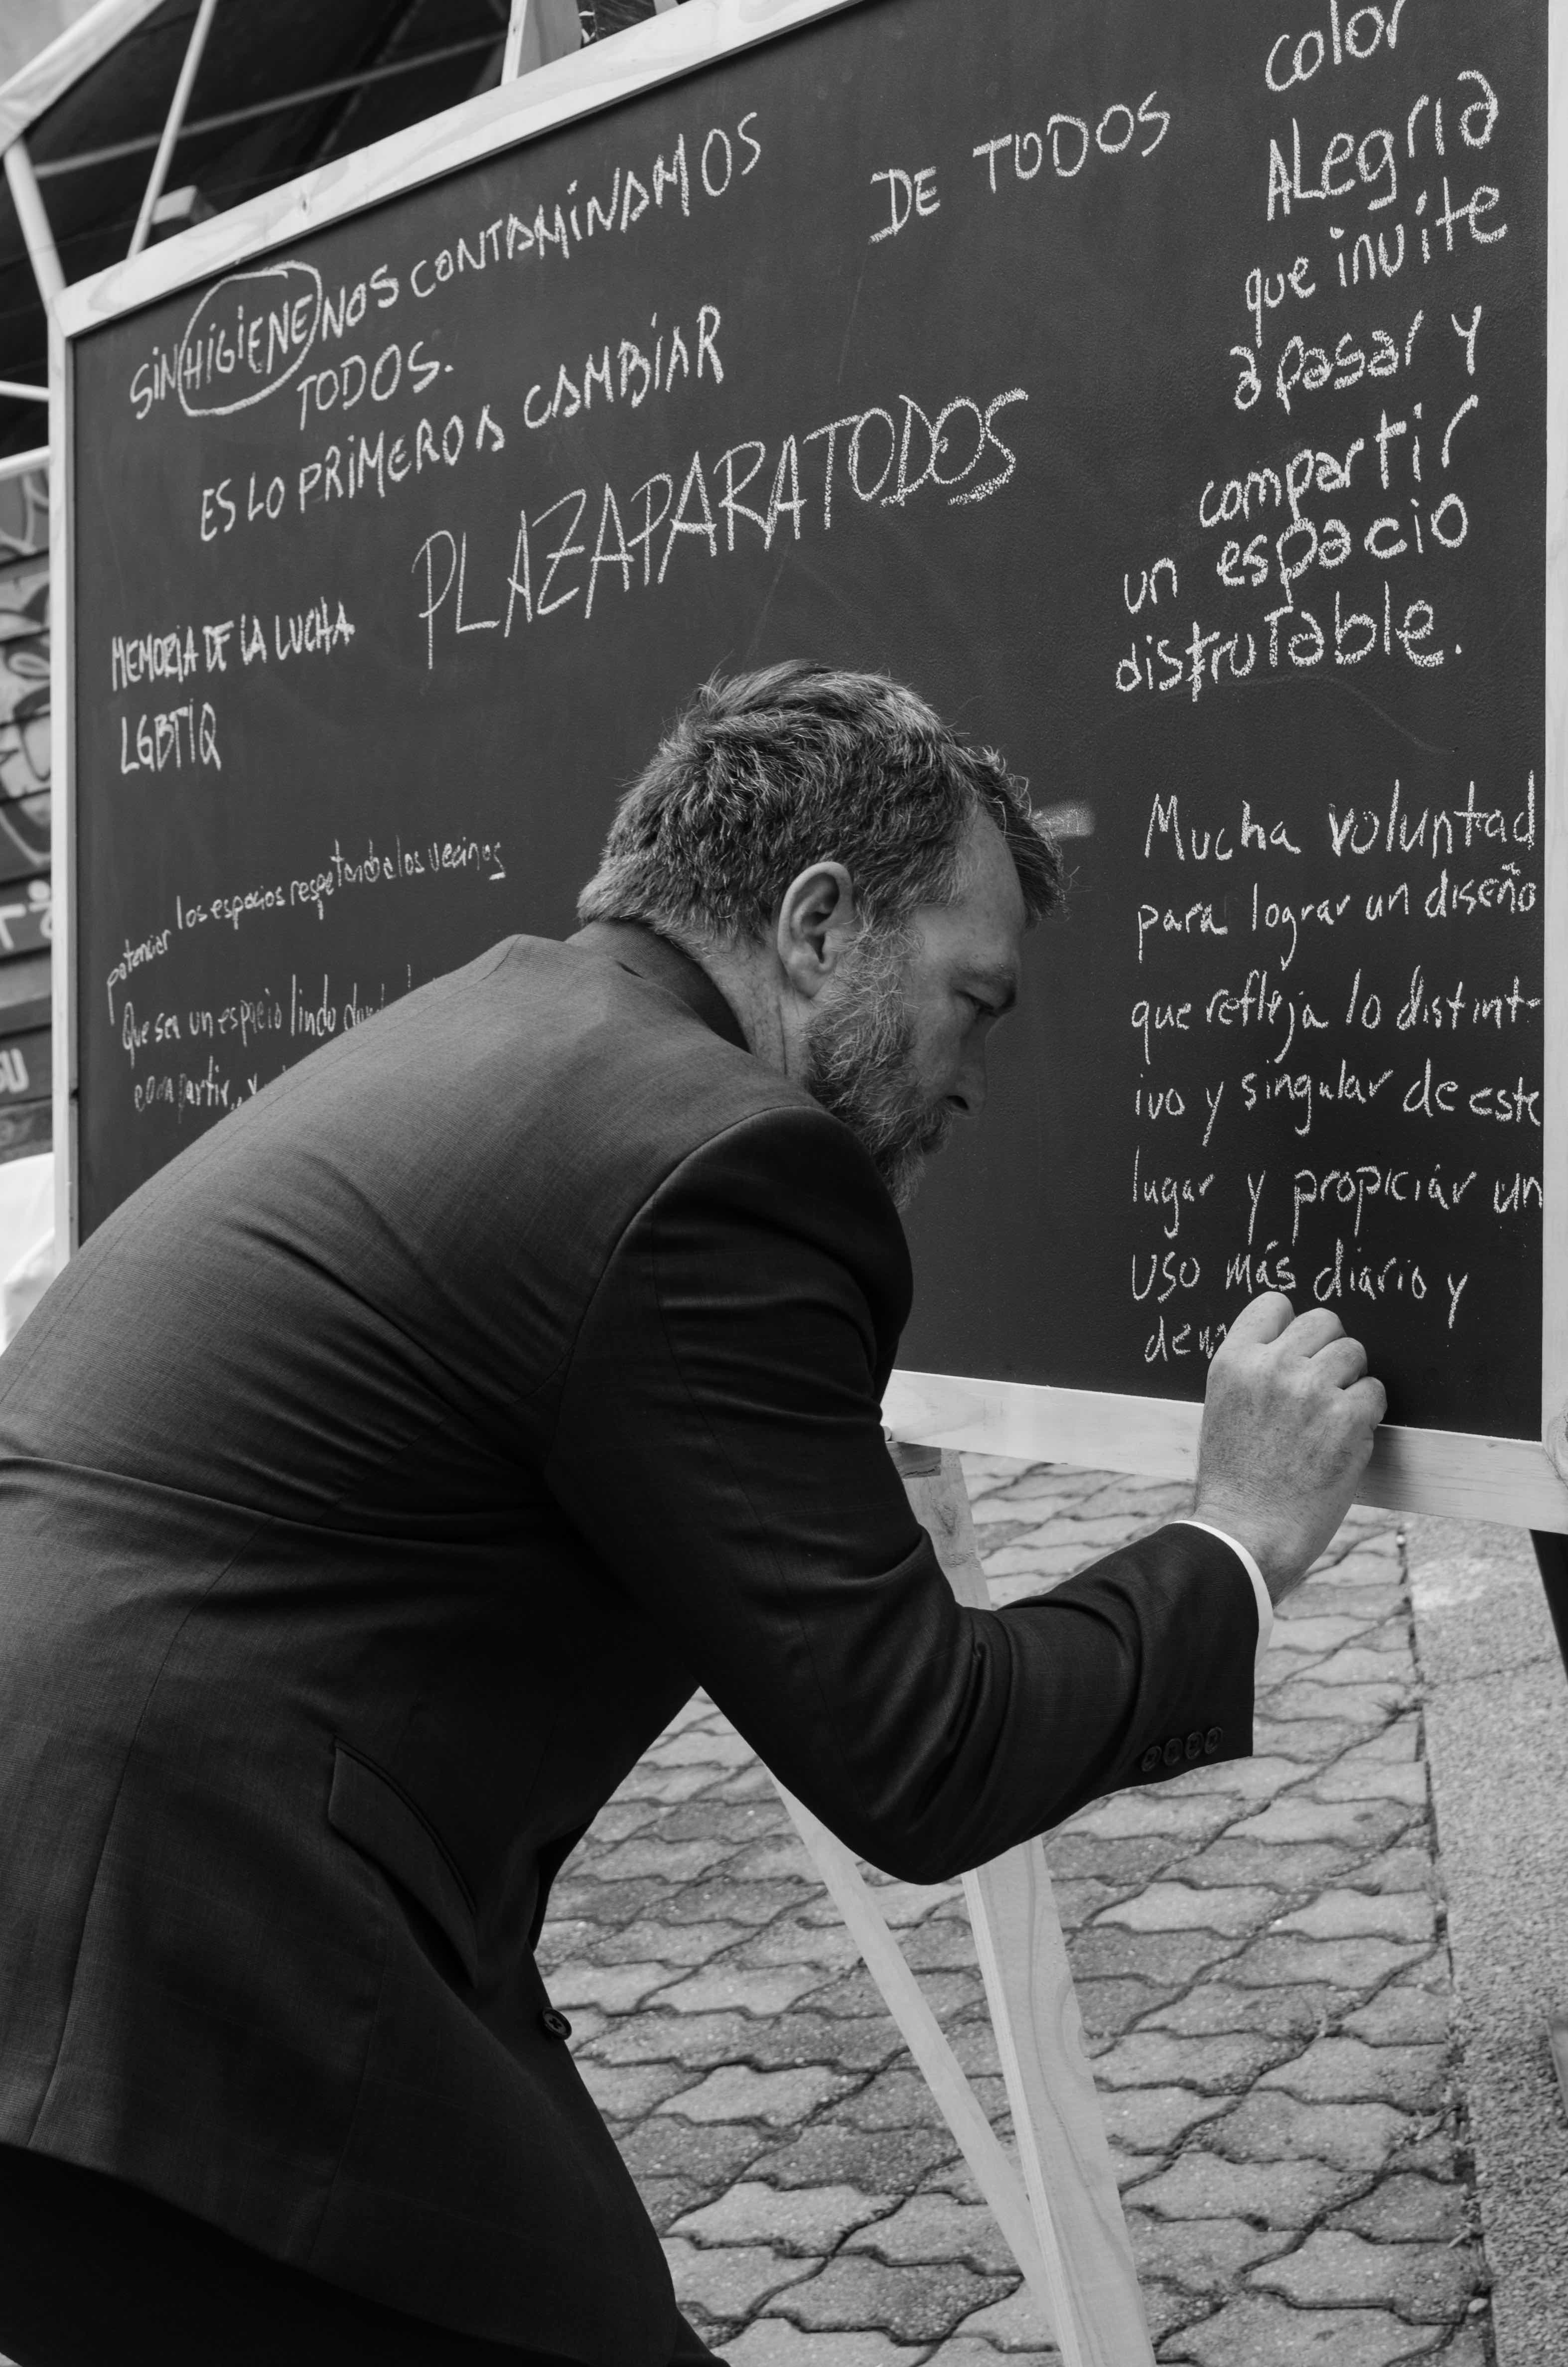 SIN HIGIENE NOS CONTAMINAMOS
TODOS.
ES LO PRIMERO A CAMBIAR
DE TODOS
PLAZAPARATODOS
MEMORIA DE LA LUCHA
LGBTIQ
potenciar los espacios respetando a los vecinos
Que sea un espacio lindo
compartir
color
ALegria
que invite
a pasar y
compartir
un espacio
disfrutable.
Mucha voluntad
para lograr un diseño
que refleja lo distint-
ivo y singular de este
lugar y propiciar un
uso más diario y